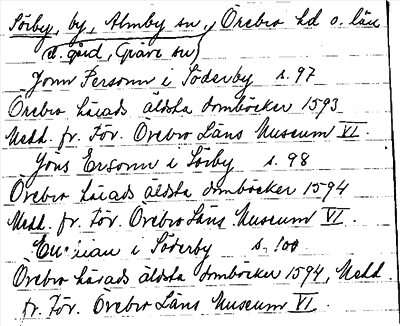 Sörby, by, Almby sn, Örebro hd o. län
d. gård, Gräve sn
Jonn Personn i Söderby s. 97
Örebro härads äldsta domböcker 1593
Medd. fr. För. Örebro Läns Museum VI.
Jöns Ersonn i Sörby s. 98
Örebro härads äldsta domböcker 1594
Medd. fr. För. Örebro Läns Museum VI.
i Söderby s. 100
Örebro härads äldsta domböcker 1594, Medd.
fr. För. Örebro Läns Museum VI.